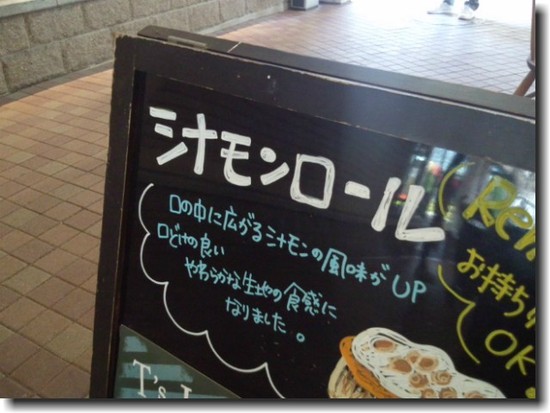 シナモンロール
口の中に広がるシナモンの風味がUP
口どけの良い
やわらかな生地の食感に
なりました。
Ren
お持ち
OK
T's